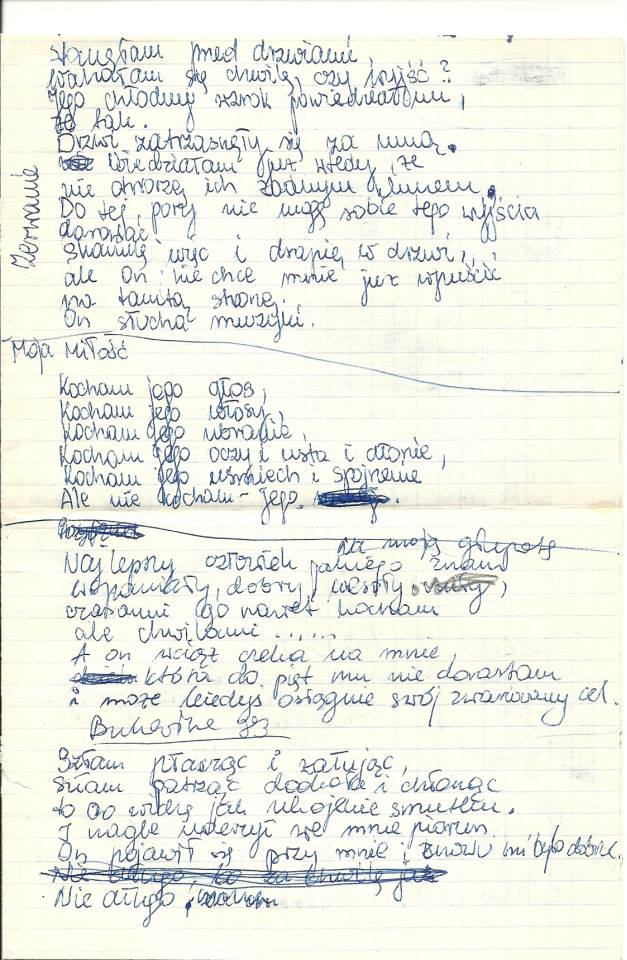 Zerwanie
stanęłam przed drzwiami,
wahałam się chwilę, czy wyjść?
Jego chłodny wzrok powiedział mi,
że tak.
Drzwi zatrzasnęły się za mną.
Wiedziałam już wtedy, że
nie otworzę ich żadnym kluczem.
Do tej pory nie mogę sobie tego wyjścia
darować
skamlę więc i drapię w drzwi,
ale On nie chce mnie już wpuścić
na tamtą stronę.
On słucha muzyki.
Moja Miłość
Kocham jego głos,
Kocham jego włosy,
Kocham jego ubranie,
Kocham jego oczy i usta i dłonie,
Kocham jego uśmiech i spojrzenie
Ale nie kocham - Jego
na moją głupotę
Najlepszy człowiek jakiego znam
wspaniały, dobry, wesoły,
czasami go nawet kocham
ale chwilami ......
A on wciąż czeka na mnie,
która do pięt mu nie dorastam
i może kiedyś osiągnie swój zwariowany cel.
Bukovina 93
Szłam płacząc i żałując,
szłam patrząc dookoła i chłonąc
to co widzę jak ukojenie smutku.
I nagle uderzył we mnie piorun
On pojawił się przy mnie i znowu mi było dobrze.
Nie długo,